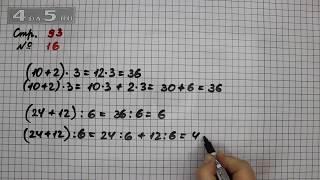 4 ДА 5 .RU
Стр. 93
№ 16
(10+2) · 3 = 12·3 = 36
(10+2) · 3 = 10·3 + 2·3 = 30+6 = 36
(24+12) : 6 = 36 : 6 = 6
(24+12) : 6 = 24 : 6 + 12 : 6 = 4